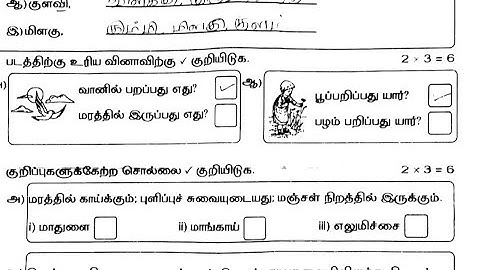 ஆ) குளவி.
இ) மிளகு.
படத்திற்கு உரிய வினாவிற்கு ✓ குறியிடுக. 2 × 3 = 6
வானில் பறப்பது எது? ✓
மரத்தில் இருப்பது எது?
ஆ)
பூப்பறிப்பது யார்? ✓
பழம் பறிப்பது யார்?
குறிப்புகளுக்கேற்ற சொல்லை ✓ குறியிடுக. 2 × 3 = 6
அ) மரத்தில் காய்க்கும்; புளிப்புச் சுவையுடையது; மஞ்சள் நிறத்தில் இருக்கும்.
i) மாதுளை ii) மாங்காய் iii) எலுமிச்சை